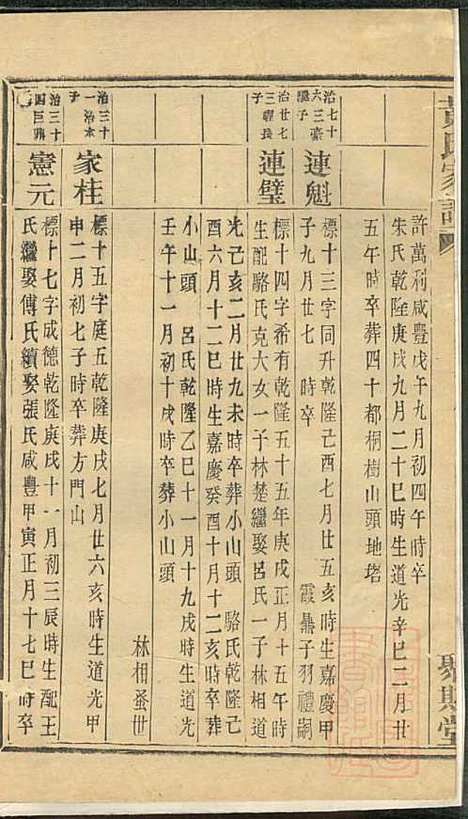 黃氏家譜
聚斯堂
許萬利咸豐戊午九月初四午時卒
朱氏乾隆庚戌九月二十巳時生道光辛巳二月廿
五午時卒葬四十都桐樹山頭地塔
治七十
六三豪
諡子
連魁
標十三字同升乾隆己酉七月廿五亥時生嘉慶甲
子九月廿七 時卒 霞鼎子羽禮嗣
治廿七
三
子
連璧
標十四字希有乾隆五十五年庚戌正月十五午時
生配駱氏克大女一子林楚繼娶呂氏一子林相道
光己亥二月廿九未時卒葬小山頭 駱氏乾隆己
酉六月十二巳時生嘉慶癸酉十月十二亥時卒葬
小山頭 呂氏乾隆乙巳十一月十九戌時生道光
壬午十一月初十戌時卒葬小山頭
林相蚤世
治三十
一治本
子
家桂
標十五字庭五乾隆庚戌七月廿六亥時生道光甲
申二月初七子時卒葬方門山
治三十
四巨鼎
憲元
標十七字成德乾隆庚戌十一月初三辰時生配王
氏繼娶傅氏續娶張氏咸豐甲寅正月十七巳時卒